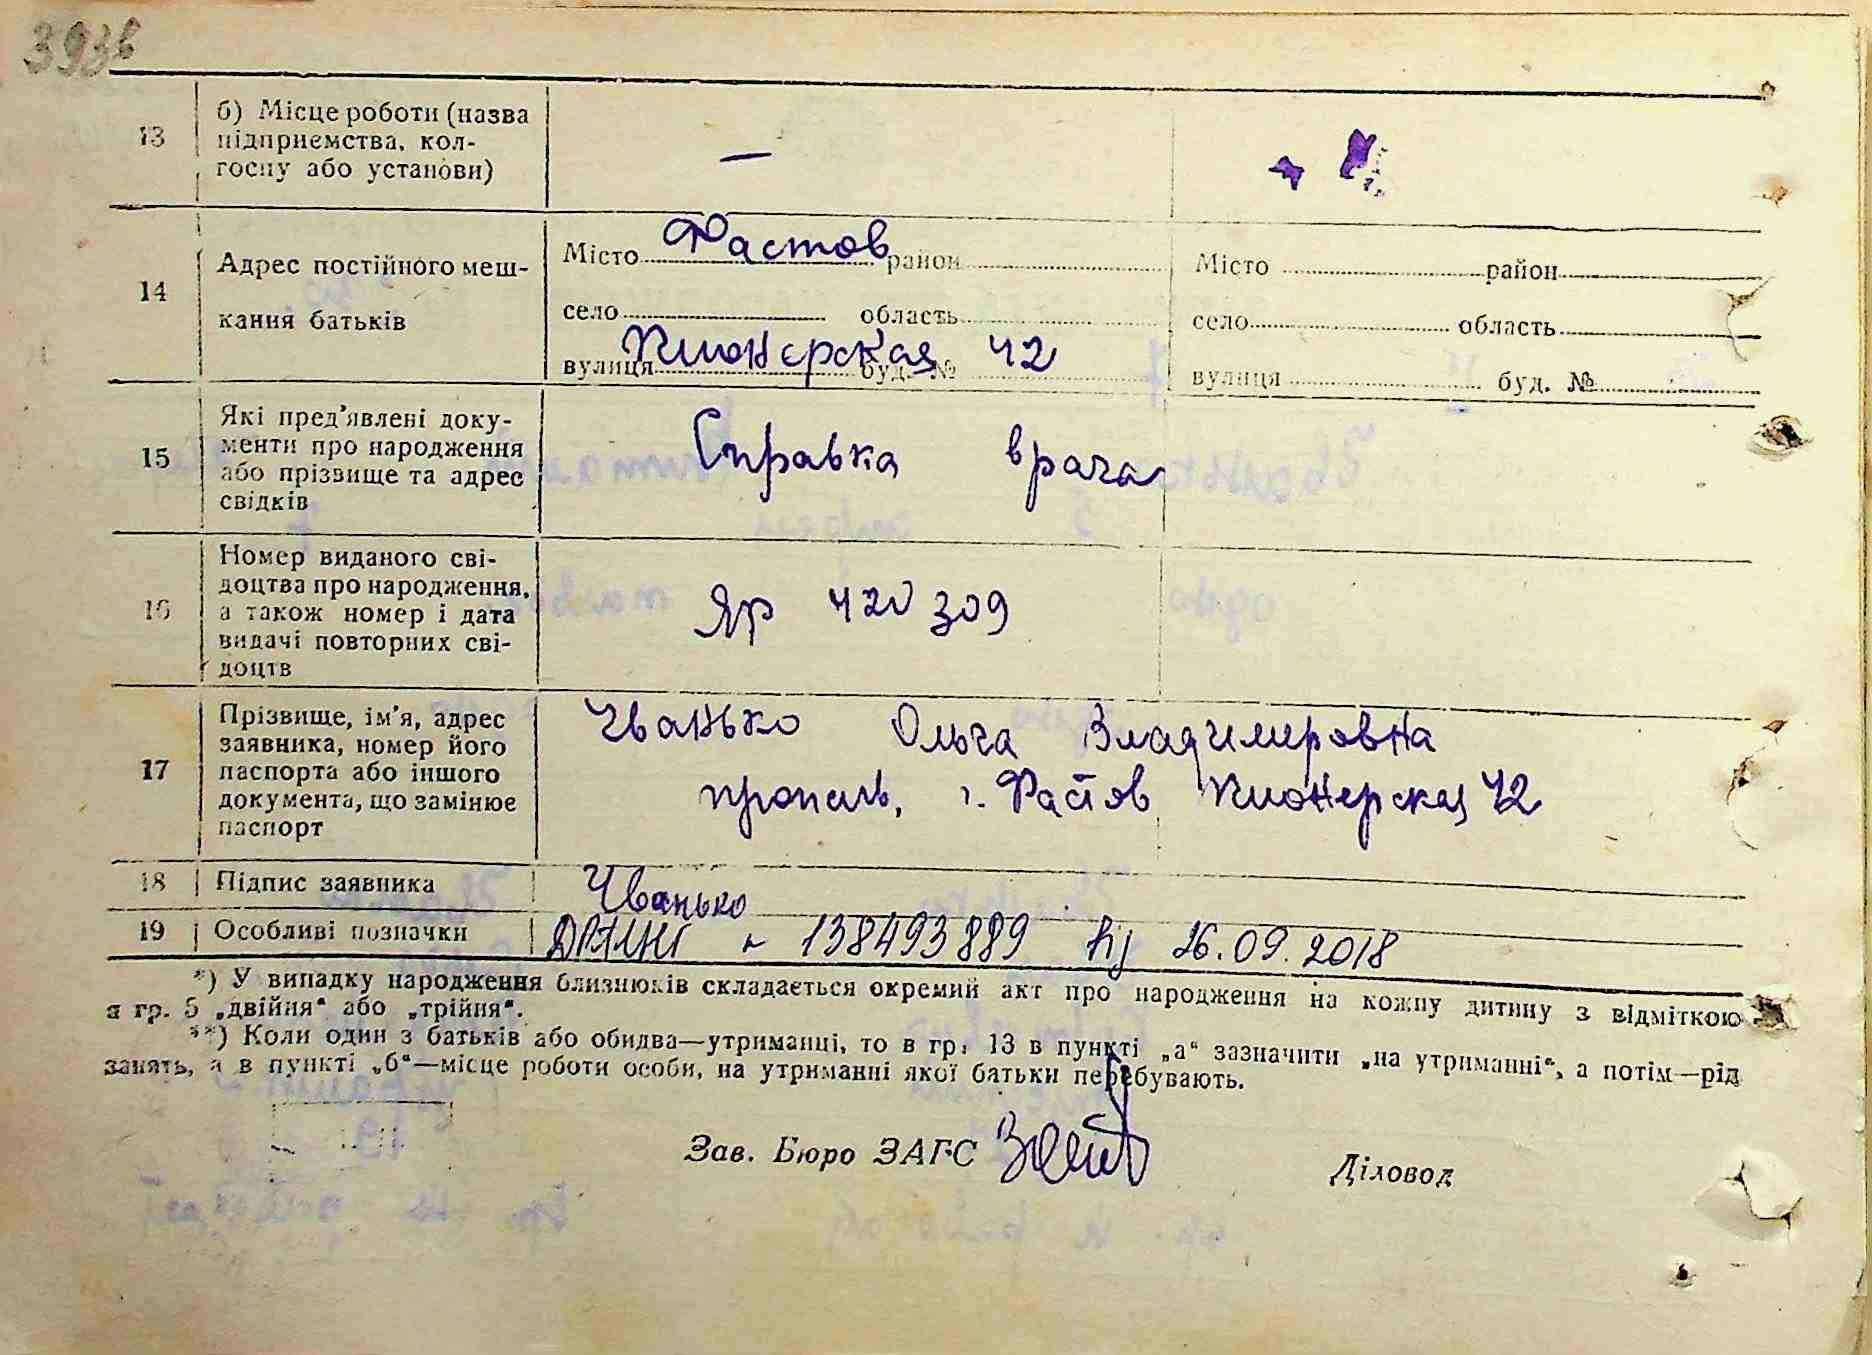 393в
13
б) Місце роботи (назва
підприємства, кол-
госпу або установи)
—
14
Адрес постійного меш-
кання батьків
Місто Фастов район
село область
вулиця Пионерская буд. № 42
Місто район
село область
вулиця буд. №
15
Які пред'явлені доку-
менти про народження
або прізвище та адрес
свідків
Справка врача
16
Номер виданого сві-
доцтва про народження,
а також номер і дата
видачі повторних сві-
доцтв
ЯР 420309
17
Прізвище, ім'я, адрес
заявника, номер його
паспорта або іншого
документа, що замінює
паспорт
Чванько Ольга Владимировна
г. Фастов Пионерская 42
18
Підпис заявника
Чванько
19
Особливі позначки
138493889 26.09.2018
*) У випадку народження близнюків складається окремий акт про народження на кожну дитину з відміткою
в гр. 5 „двійня“ або „трійня“.
**) Коли один з батьків або обидва—утриманці, то в гр. 13 в пункті „а“ зазначити „на утриманні“, а потім—рід
занять, а в пункті „б“—місце роботи особи, на утриманні якої батьки перебувають.
Зав. Бюро ЗАГС
Діловод